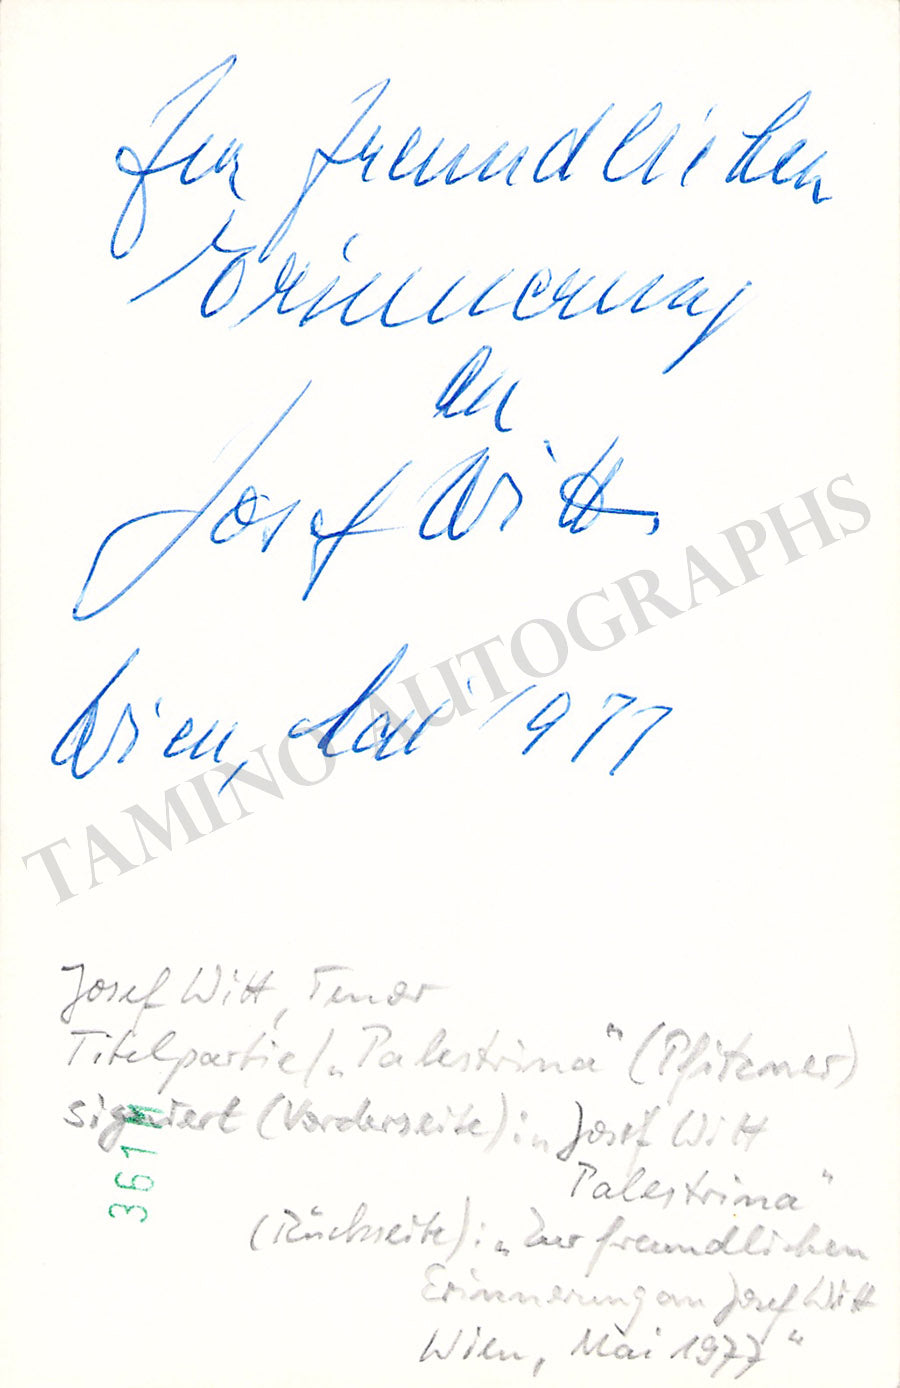 Zur freundlichen
Erinnerung
an
Josef Witt.
Wien, Mai 1977
TAMINO AUTOGRAPHS
Josef Witt, Tenor
Titelpartie/„Palestrina“ (Pfitzner)
signiert (Vorderseite): „Josef Witt
Palestrina“
(Rückseite): „Zur freundlichen
Erinnerung an Josef Witt
Wien, Mai 1977“
361